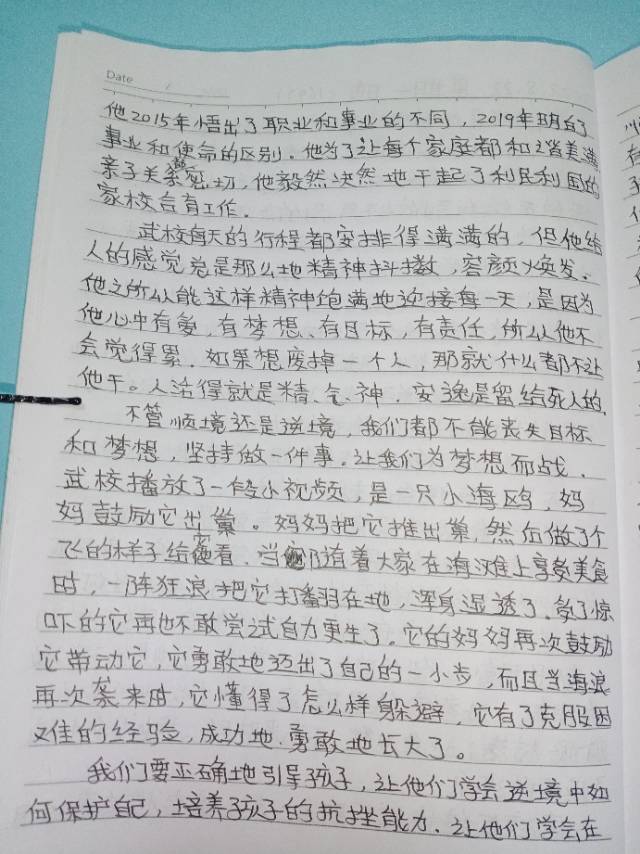 Date
他2015年悟出了职业和事业的不同，2019年明白了
事业和使命的区别。他为了让每个家庭都和谐美满
亲子关系密切，他毅然决然地干起了利民利国的
家校合育工作。
武校每天的行程都安排得满满的，但他给
人的感觉总是那么地精神抖擞，容颜焕发。
他之所以能这样精神饱满地迎接每一天，是因为
他心中有爱，有梦想、有目标，有责任，所以他不
会觉得累。如果想废掉一个人，那就什么都不让
他干。人活得就是精、气、神，安逸是留给死人的。
不管顺境还是逆境，我们都不能丧失目标
和梦想，坚持做一件事。让我们为梦想而战。
武校播放了一段小视频，是一只小海鸥，妈
妈鼓励它出巢。妈妈把它推出巢，然后做了个
飞的样子给它看。当随着大家在海滩上享受美食
时，一阵狂浪把它打翻在地，浑身湿透了。受了惊
吓的它再也不敢尝试自力更生了。它的妈妈再次鼓励
它带动它，它勇敢地迈出了自己的一小步，而且当海浪
再次袭来时，它懂得了怎么样躲避，它有了克服困
难的经验，成功地、勇敢地长大了。
我们要正确地引导孩子，让他们学会逆境中如
何保护自己，培养孩子的抗挫能力。让他们学会在